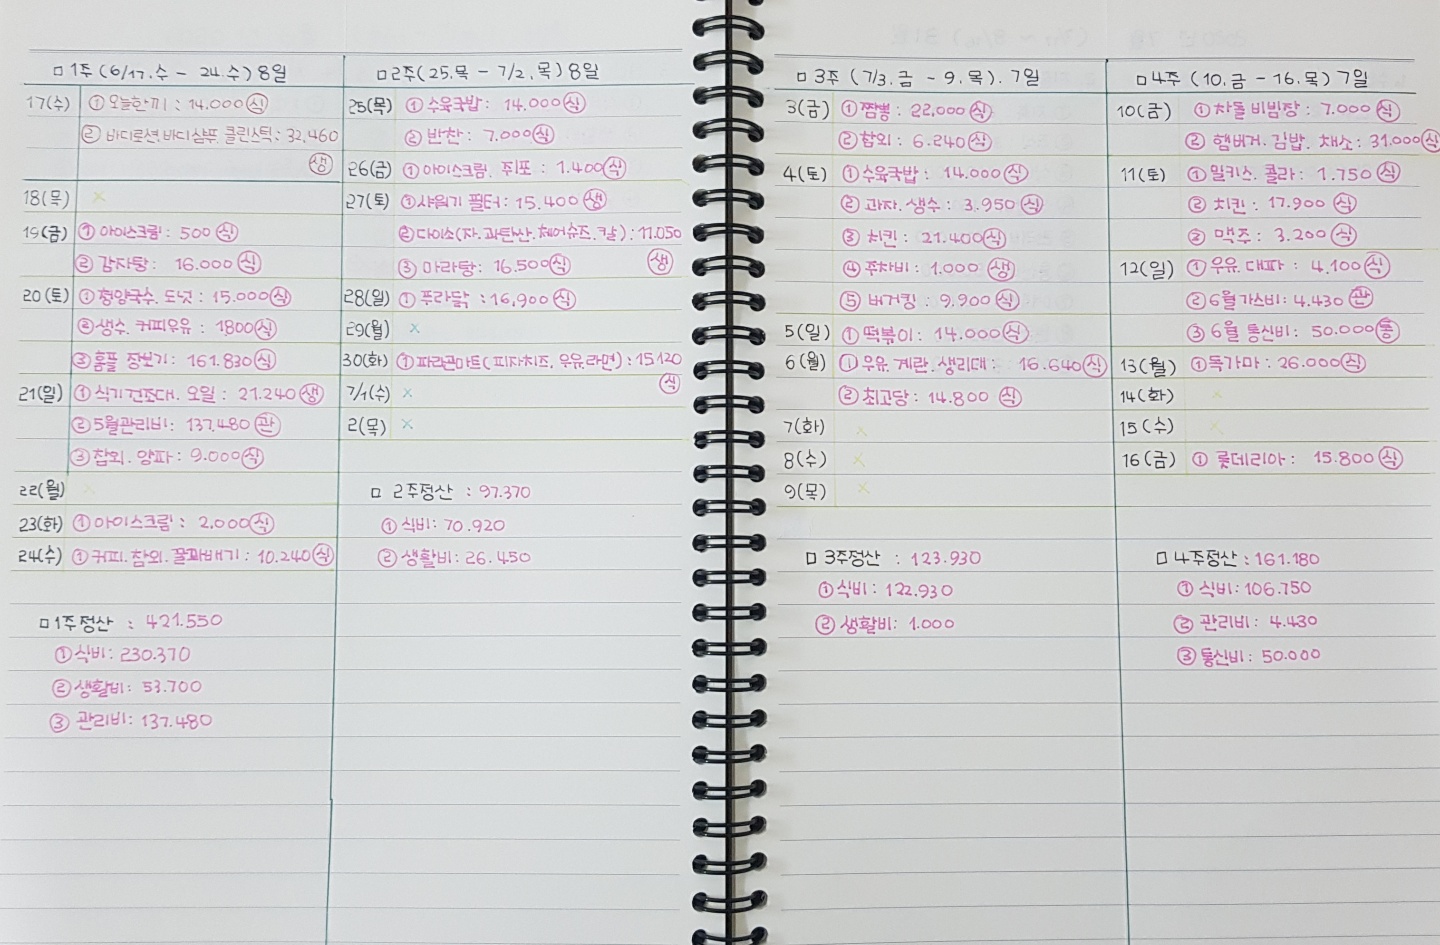 □ 1주 (6/17.수 - 24.수) 8일
17(수) ① 오늘한끼 : 14.000 식
② 바디로션.바디샴푸.클린스틱 : 32.460
생
18(목) ×
19(금) ① 아이스크림 : 500 식
② 감자탕 : 16.000 식
20(토) ① 형양국수. 도넛 : 15.000 식
② 생수. 커피우유 : 1800 식
③ 홈플 장보기 : 161.830 식
21(일) ① 식기건조대. 오일 : 21.240 생
② 5월관리비 : 137.480 관
③ 참외. 양파 : 9.000 식
22(월) ×
23(화) ① 아이스크림 : 2.000 식
24(수) ① 커피. 참외. 꿀꽈배기 : 10.240 식
□ 1주정산 : 421.550
① 식비 : 230.370
② 생활비 : 53.700
③ 관리비 : 137.480
□ 2주 (25.목 - 7/2.목) 8일
25(목) ① 수육국밥 : 14.000 식
② 반찬 : 7.000 식
26(금) ① 아이스크림. 쥐포 : 1.400 식
27(토) ① 샤워기 필터 : 15.400 생
② 다이소(자.과탄산.체어슈즈.칼) : 11.050
생
③ 마라탕 : 16.500 식
28(일) ① 푸라닭 : 16,900 식
29(월) ×
30(화) ① 파라곤마트(피자치즈. 우유.라면) : 15.120
식
7/1(수) ×
2(목) ×
□ 2주정산 : 97.370
① 식비 : 70.920
② 생활비 : 26.450
□ 3주 (7/3.금 - 9.목). 7일
3(금) ① 짬뽕 : 22,000 식
② 참외 : 6.240 식
4(토) ① 수육국밥 : 14.000 식
② 과자.생수 : 3.950 식
③ 치킨 : 21.400 식
④ 주차비 : 1.000 생
⑤ 버거킹 : 9.900 식
5(일) ① 떡볶이 : 14.000 식
6(월) ① 우유.계란.생리대 : 16.640 식
② 최고당 : 14.800 식
7(화) ×
8(수) ×
9(목) ×
□ 3주정산 : 123.930
① 식비 : 122.930
② 생활비 : 1.000
□ 4주 (10.금 - 16.목) 7일
10(금) ① 차돌 비빔장 : 7.000 식
② 햄버거.김밥. 채소 : 31.000 식
11(토) ① 밀키스. 콜라 : 1.750 식
② 치킨 : 17.900 식
③ 맥주 : 3.200 식
12(일) ① 우유. 대파 : 4.100 식
② 6월가스비 : 4.430 관
③ 6월 통신비 : 50.000 통
13(월) ① 독가마 : 26.000 식
14(화) ×
15(수) ×
16(금) ① 롯데리아 : 15.800 식
□ 4주정산 : 161.180
① 식비 : 106.750
② 관리비 : 4.430
③ 통신비 : 50.000